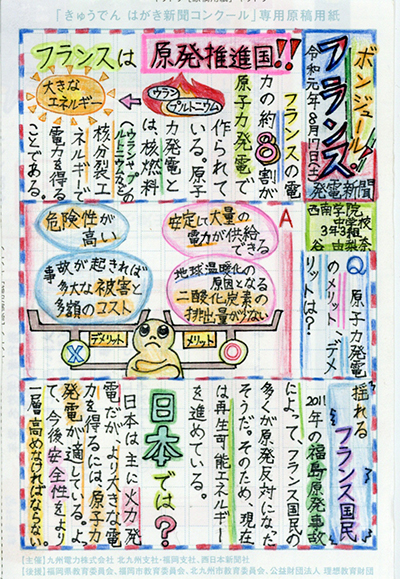 「きゅうでん はがき新聞コンクール」専用原稿用紙
ボンジュール!
フランス
令和元年8月17日(土)
発電新聞
西南学院
中学校
3年3組
谷 由梨奈
フランスは原発推進国!!
フランスの電
力の約8割が
原子力発電で
作られて
いる。原子
力発電と
は、核燃料
(ウラン、プル
トニウムなど)の
核分裂エ
ネルギーで
電力を得る
ことである。
ウラン
プルトニウム
大きな
エネルギー
Q 原子力発電
のメリット、デメ
リットは?
A
安定して大量の
電力が供給
できる
地球温暖化の
原因となる
二酸化炭素の
排出量が少ない
危険性が
高い
事故が起きれば
多大な被害と
多額のコスト
デメリット
メリット
揺れる
フランス国民
2011年の福島原発事故
によって、フランス国民の
多くが原発反対になった
そうだ。そのため、現在
は再生可能エネルギー
を進めている。
日本では?
日本は主に火力発
電だが、より大きな電
力を得るには、原子力
発電が適している。よっ
て、今後安全性をより
一層高めなければならない。
【主催】九州電力株式会社 北九州支社・福岡支社、西日本新聞社
【後援】福岡県教育委員会、福岡市教育委員会、北九州市教育委員会、公益財団法人 理想教育財団